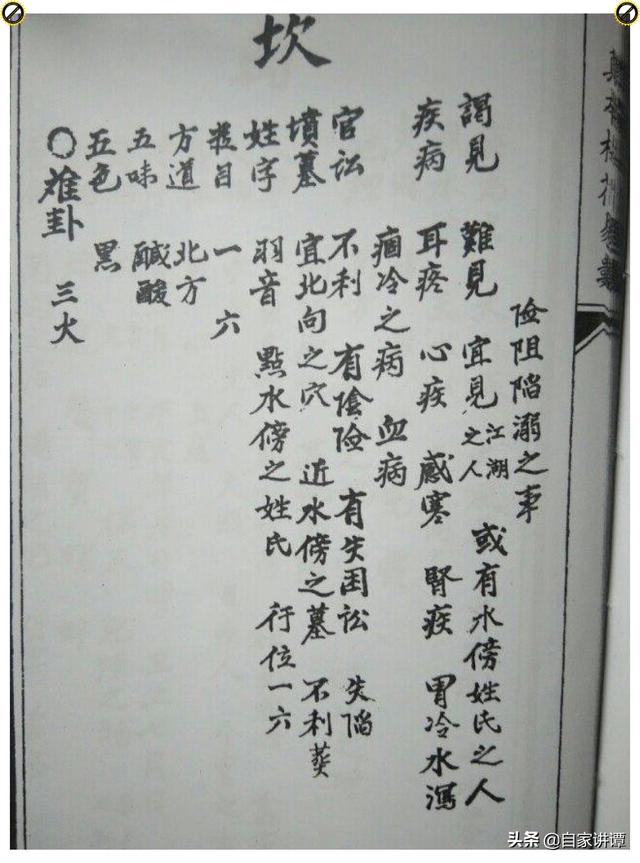 坎
险阻陷溺之事
謁見 難見 宜見江湖之人 或有水傍姓氏之人
疾病 耳疼 心疾 感寒 腎疾 胃冷水瀉
痼冷之病 血病
官訟 不利 有陰险 有失困訟 失陷
墳墓 宜北向之穴 近水傍之墓 不利葬
姓字 羽音 點水傍之姓氏 行位一六
数目 一 六
方道 北方
五味 鹹酸
五色 黑
○ 卦 三火
头条 @自家讲谭